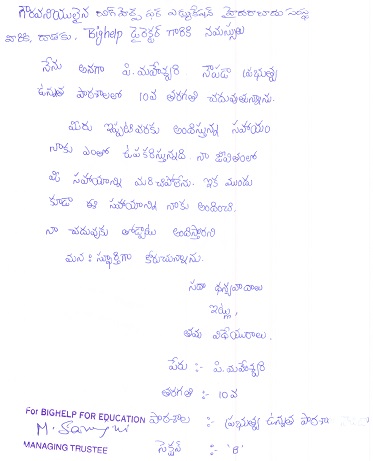 గౌరవనీయులైన బిగ్ హెల్ప్ ఫర్ ఎడ్యుకేషన్ హైదరాబాదు సంస్థ
వారికి, Bighelp డైరెక్టర్ గారికి నమస్సులు
నేను అనగా పి.మహేశ్వరి నౌపడా ప్రభుత్వ
ఉన్నత పాఠశాలలో 10వ తరగతి చదువుతున్నాను.
మీరు ఇప్పటివరకు అందిస్తున్న సహాయం
నాకు ఎంతో ఉపకరిస్తున్నది. నా జీవితంలో
మీ సహాయాన్ని మరిచిపోలేను. ఇక ముందు
కూడా ఈ సహాయాన్ని నాకు అందించి.
నా చదువుకు తోడ్పాటు అందిస్తారని
మనఃస్ఫూర్తిగా కోరుచున్నాను.
సదా ధన్యవాదాలు
ఇట్లు,
తమ విధేయురాలు.
పేరు :- పి.మహేశ్వరి
తరగతి :- 10వ
For BIGHELP FOR EDUCATION పాఠశాల :- ప్రభుత్వ ఉన్నత పాఠశా
MANAGING TRUSTEE
సెక్షన్ :- 'B'